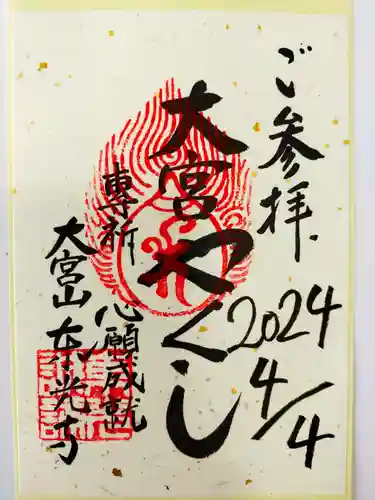 ご参拝
2024
4/4
大宮やくし
専祈 心願成就
大宮山東光寺